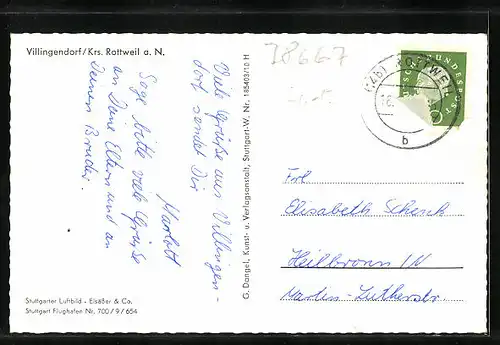 Villingendorf/Krs. Rottweil a. N.
78667
Viele Grüße aus Villingen-
dorf sendet Dir
Sage bitte viele Grüße
an Deine Eltern und an
Deinen Bruder.
G. Dangel, Kunst- u. Verlagsanstalt, Stuttgart-W. Nr. 185403/10 H
(14b) ROTTWEIL
b
DEUTSCHE BUNDESPOST
Frl.
Elisabeth Schenk
Heilbronn /N
Martin-Lutherstr.
Stuttgarter Luftbild - Elsäßer & Co.
Stuttgart Flughafen Nr. 700/9/654